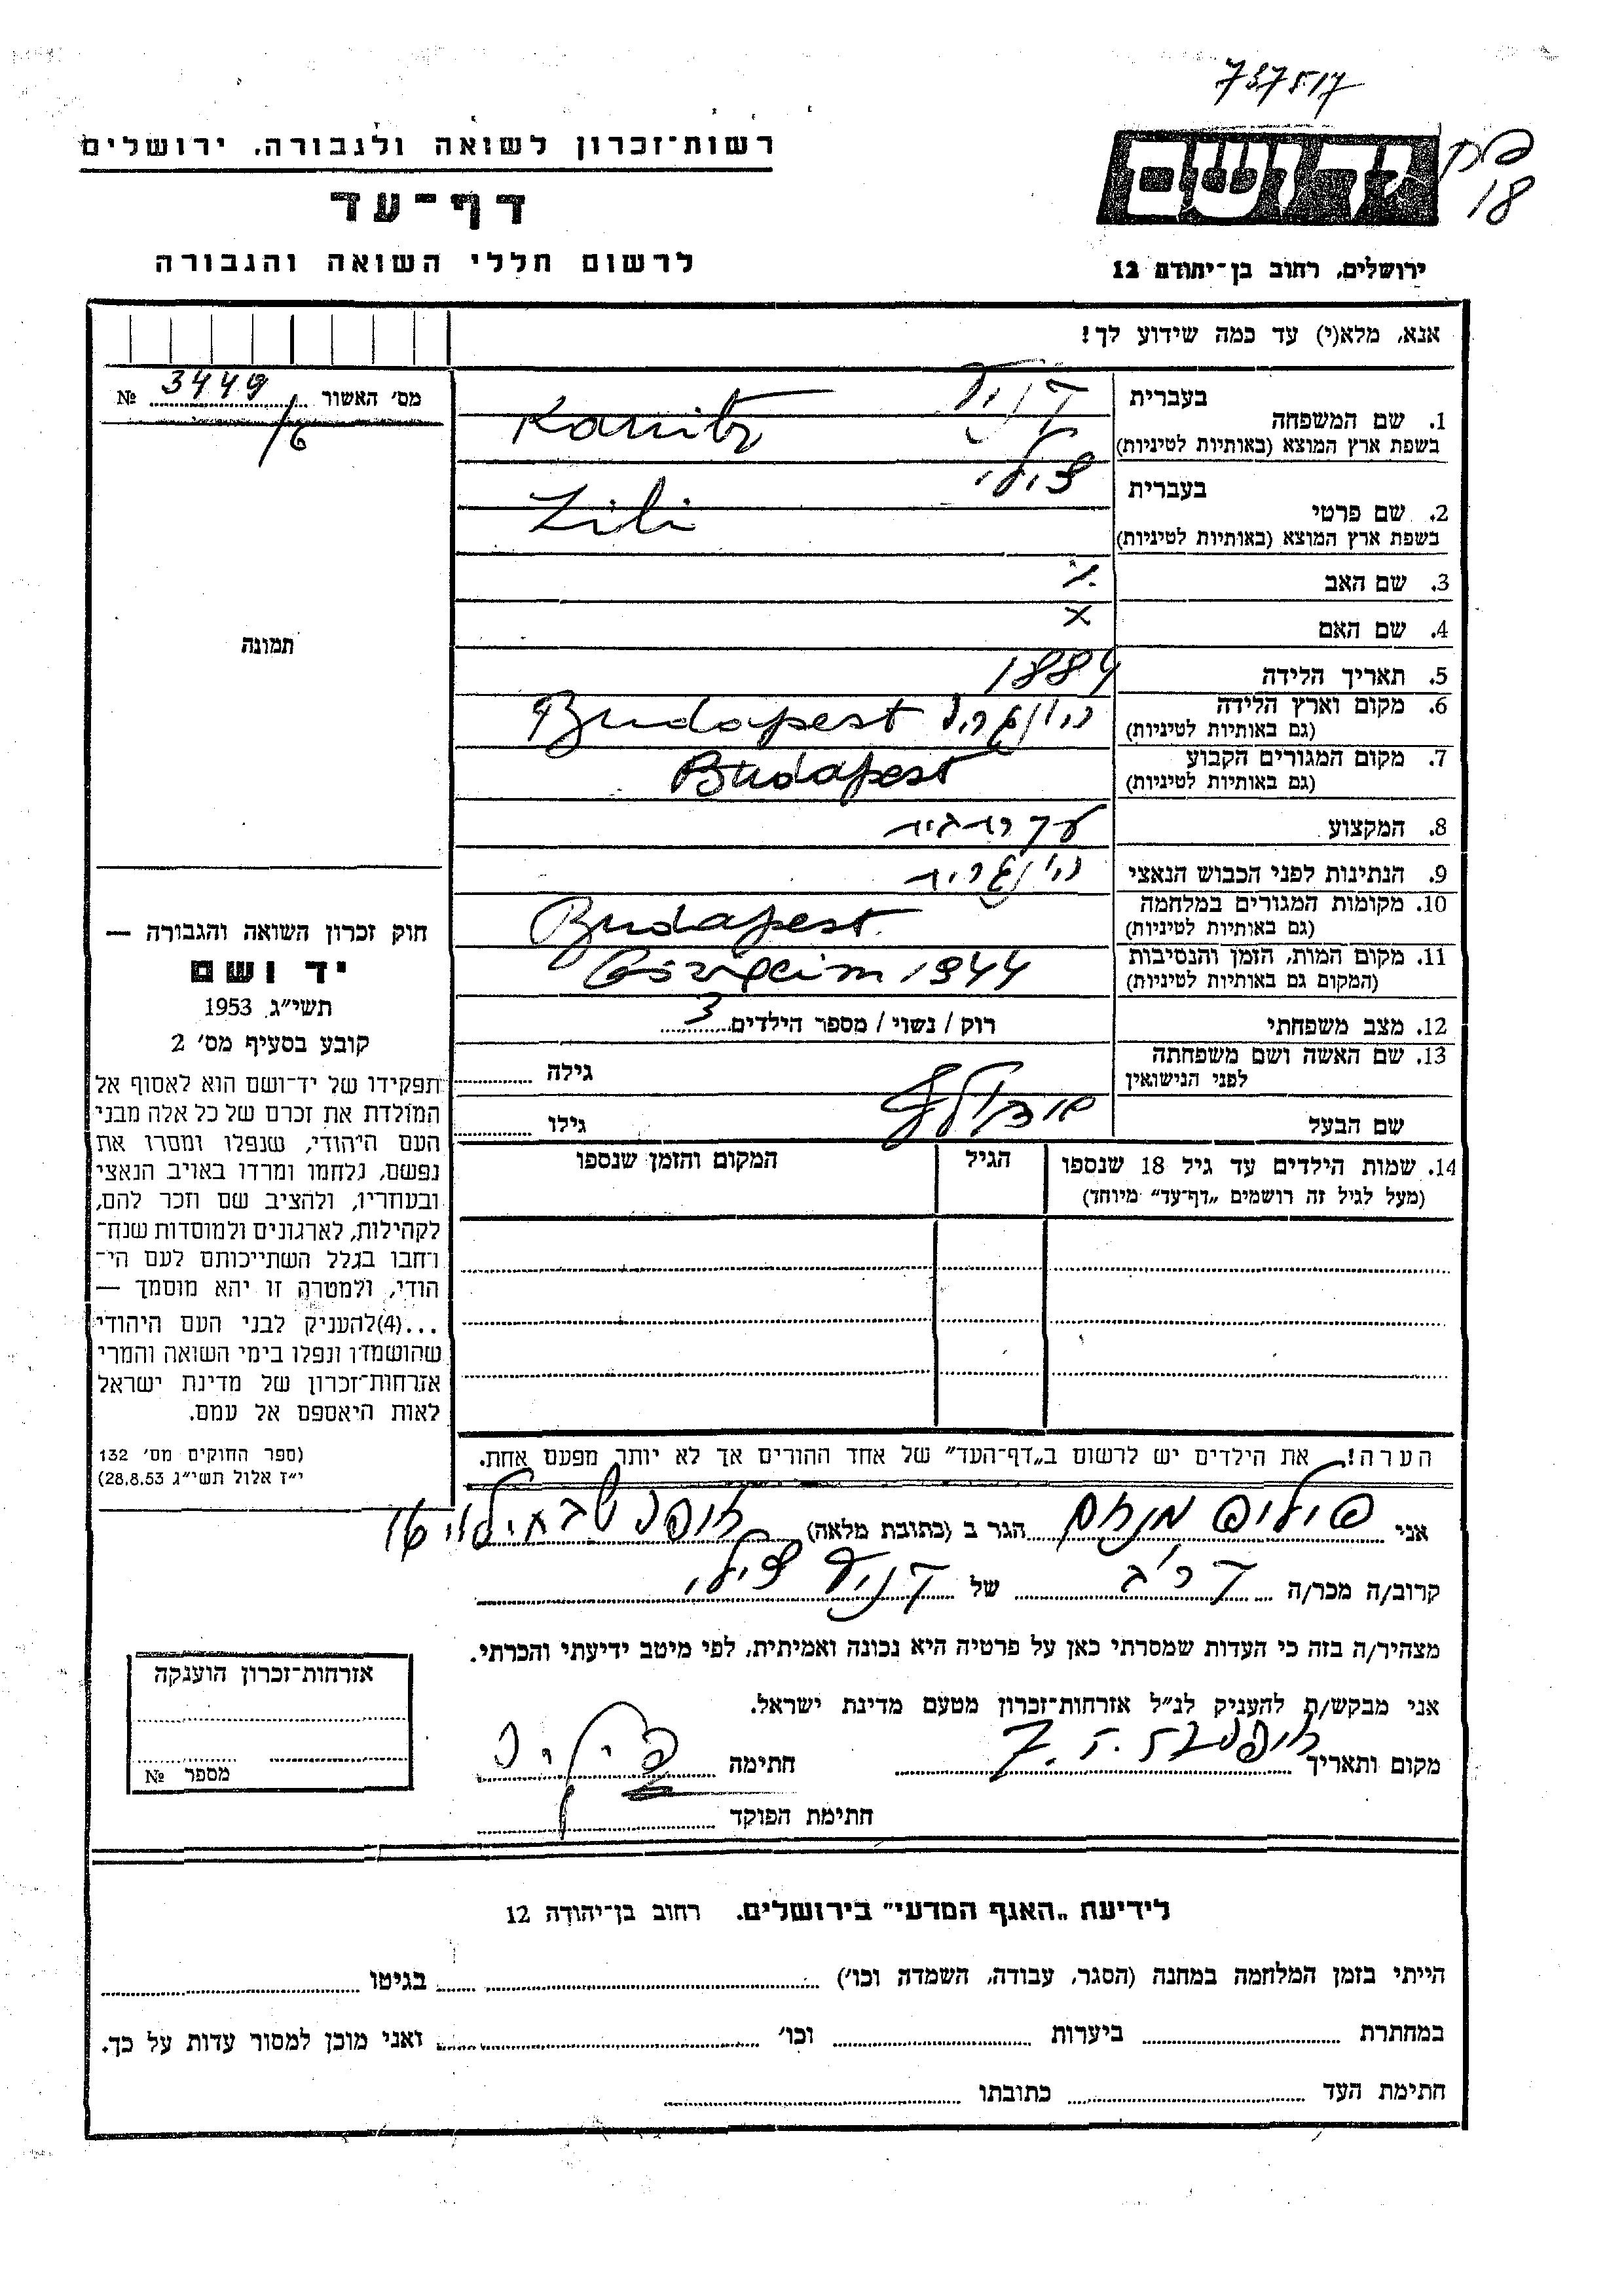 737517
רשות־זכרון לשואה ולגבורה, ירושלים
יד ושם
18
דף־עד
לרשום חללי השואה והגבורה
ירושלים, רחוב בן־יהודה 12
אנא, מלא(י) עד כמה שידוע לך!
מס׳ האשור 3449 №
16
1. שם המשפחה
בעברית
בשפת ארץ המוצא (באותיות לטיניות) Kanitz
2. שם פרטי
בעברית צילי
בשפת ארץ המוצא (באותיות לטיניות) Zili
3. שם האב
4. שם האם x
5. תאריך הלידה 1884
6. מקום וארץ הלידה הונגריה Budapest
(גם באותיות לטיניות)
7. מקום המגורים הקבוע Budapest
(גם באותיות לטיניות)
8. המקצוע עקרת בית
9. הנתינות לפני הכבוש הנאצי הונגרית
10. מקומות המגורים במלחמה Budapest
(גם באותיות לטיניות)
11. מקום המות, הזמן והנסיבות 1944
(המקום גם באותיות לטיניות)
12. מצב משפחתי רוק / נשוי / מספר הילדים 3
13. שם האשה ושם משפחתה
לפני הנישואין גילה
שם הבעל גילו
14. שמות הילדים עד גיל 18 שנספו הגיל המקום והזמן שנספו
(מעל לגיל זה רושמים „דף־עד״ מיוחד)
הערה! את הילדים יש לרשום ב„דף־העד״ של אחד ההורים אך לא יותר מפעם אחת.
תמונה
חוק זכרון השואה והגבורה —
יד ושם
תשי״ג 1953
קובע בסעיף מס׳ 2
תפקידו של יד־ושם הוא לאסוף אל
המולדת את זכרם של כל אלה מבני
העם היהודי, שנפלו ומסרו את
נפשם, נלחמו ומרדו באויב הנאצי
ובעוזריו, ולהציב שם וזכר להם,
לקהילות, לארגונים ולמוסדות שנח־
רחבו בגלל השתייכותם לעם הי־
הודי, ולמטרה זו יהא מוסמך —
...(4)להעניק לבני העם היהודי
שהושמדו ונפלו בימי השואה והמרי
אזרחות־זכרון של מדינת ישראל
לאות היאספם אל עמם.
(ספר החוקים מס׳ 132
י״ז אלול תשי״ג 28.8.53)
אני פיליפ מנחם הגר ב (כתובת מלאה)
קרוב/ה מכר/ה של צילי
מצהיר/ה בזה כי העדות שמסרתי כאן על פרטיה היא נכונה ואמיתית, לפי מיטב ידיעתי והכרתי.
אני מבקש/ת להעניק לנ״ל אזרחות־זכרון מטעם מדינת ישראל.
מקום ותאריך חתימה
חתימת הפוקד
אזרחות־זכרון הוענקה
מספר №
לידיעת „האגף המדעי״ בירושלים. רחוב בן־יהודה 12
הייתי בזמן המלחמה במחנה (הסגר, עבודה, השמדה וכו׳) בגיטו
במחתרת ביערות וכו׳ ואני מוכן למסור עדות על כך.
חתימת העד כתובתו